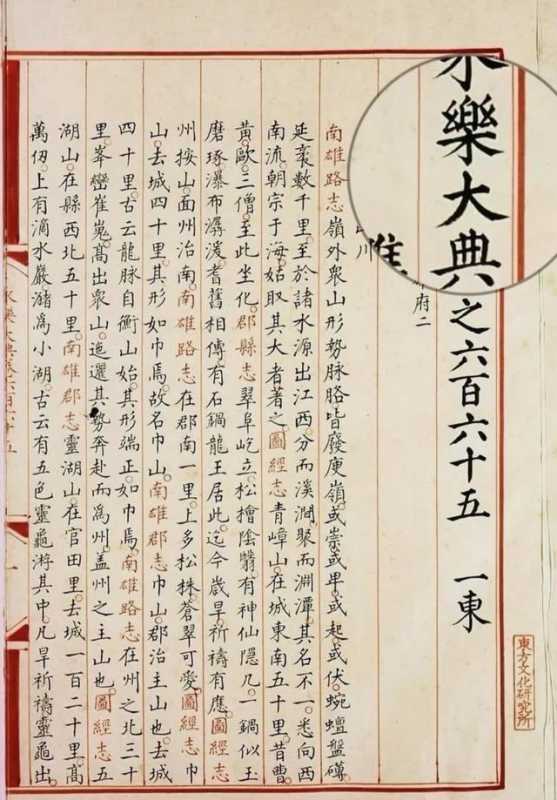 永樂大典之六百六十五 一東
雄府二
川
南雄路志嶺外衆山形勢脉胳皆廢庾嶺或崇或卑或起或伏蜿蟺盤礡
延袤數千里至於諸水源出江西分而溪澗聚而淵潭其名不一悉向西
南流朝宗于海姑取其大者著之圖經志青嶂山在城東南五十里昔曹
黄歐三僧至此坐化郡縣志翠阜屹立松檜陰翳有神仙隱几一鍋似玉
磨琢瀑布潺湲耆舊相傳有石鍋龍王居此迄今歲旱祈禱有應圖經志
州按山面州治南南雄路志在郡南一里上多松株蒼翠可愛圖經志巾
山去城四十里其形如巾焉故名巾山南雄郡志巾山郡治主山也去城
四十里古云龍脉自衡山始其形端正如巾焉南雄路志在州之北三十
里峯巒崔嵬髙出衆山迤邐其勢奔赴而爲州盖州之主山也圖經志五
湖山在縣西北五十里南雄郡志靈湖山在官田里去城一百二十里髙
萬仞上有滴水巖瀦爲小湖古云有五色靈龜游其中凡旱祈禱靈龜出
永樂大典卷六百六十五
一
東方文化研究所